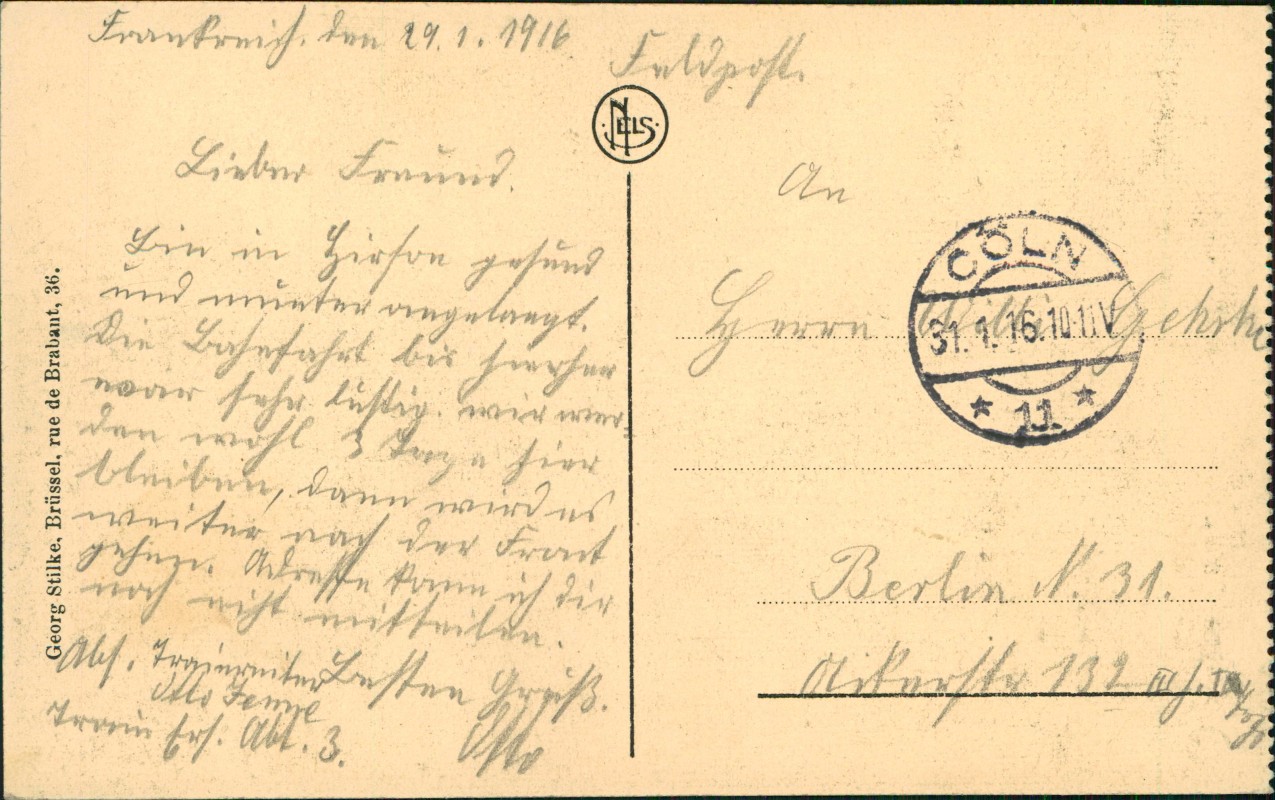 Frankreich. den 29.1.1916
Feldpost.
NELS
Lieber Freund.
Bin in Hirson gesund
und munter angelangt.
Die Bahnfahrt bis hierher
war sehr lustig. wir wer-
den wohl 3 Tage hier
bleiben, dann wird es
weiter nach der Front
gehen. Adresse kann ich dir
noch nicht mitteilen.
Besten Gruß.
Otto
Abs. Trainreiter
Otto
Train Ers. Abt. 3.
Georg Stilke, Brüssel, rue de Brabant, 36.
An
Herrn
Berlin N. 31.
Ackerstr 132 III
CÖLN
31.1.16.10-11V
* 11 *